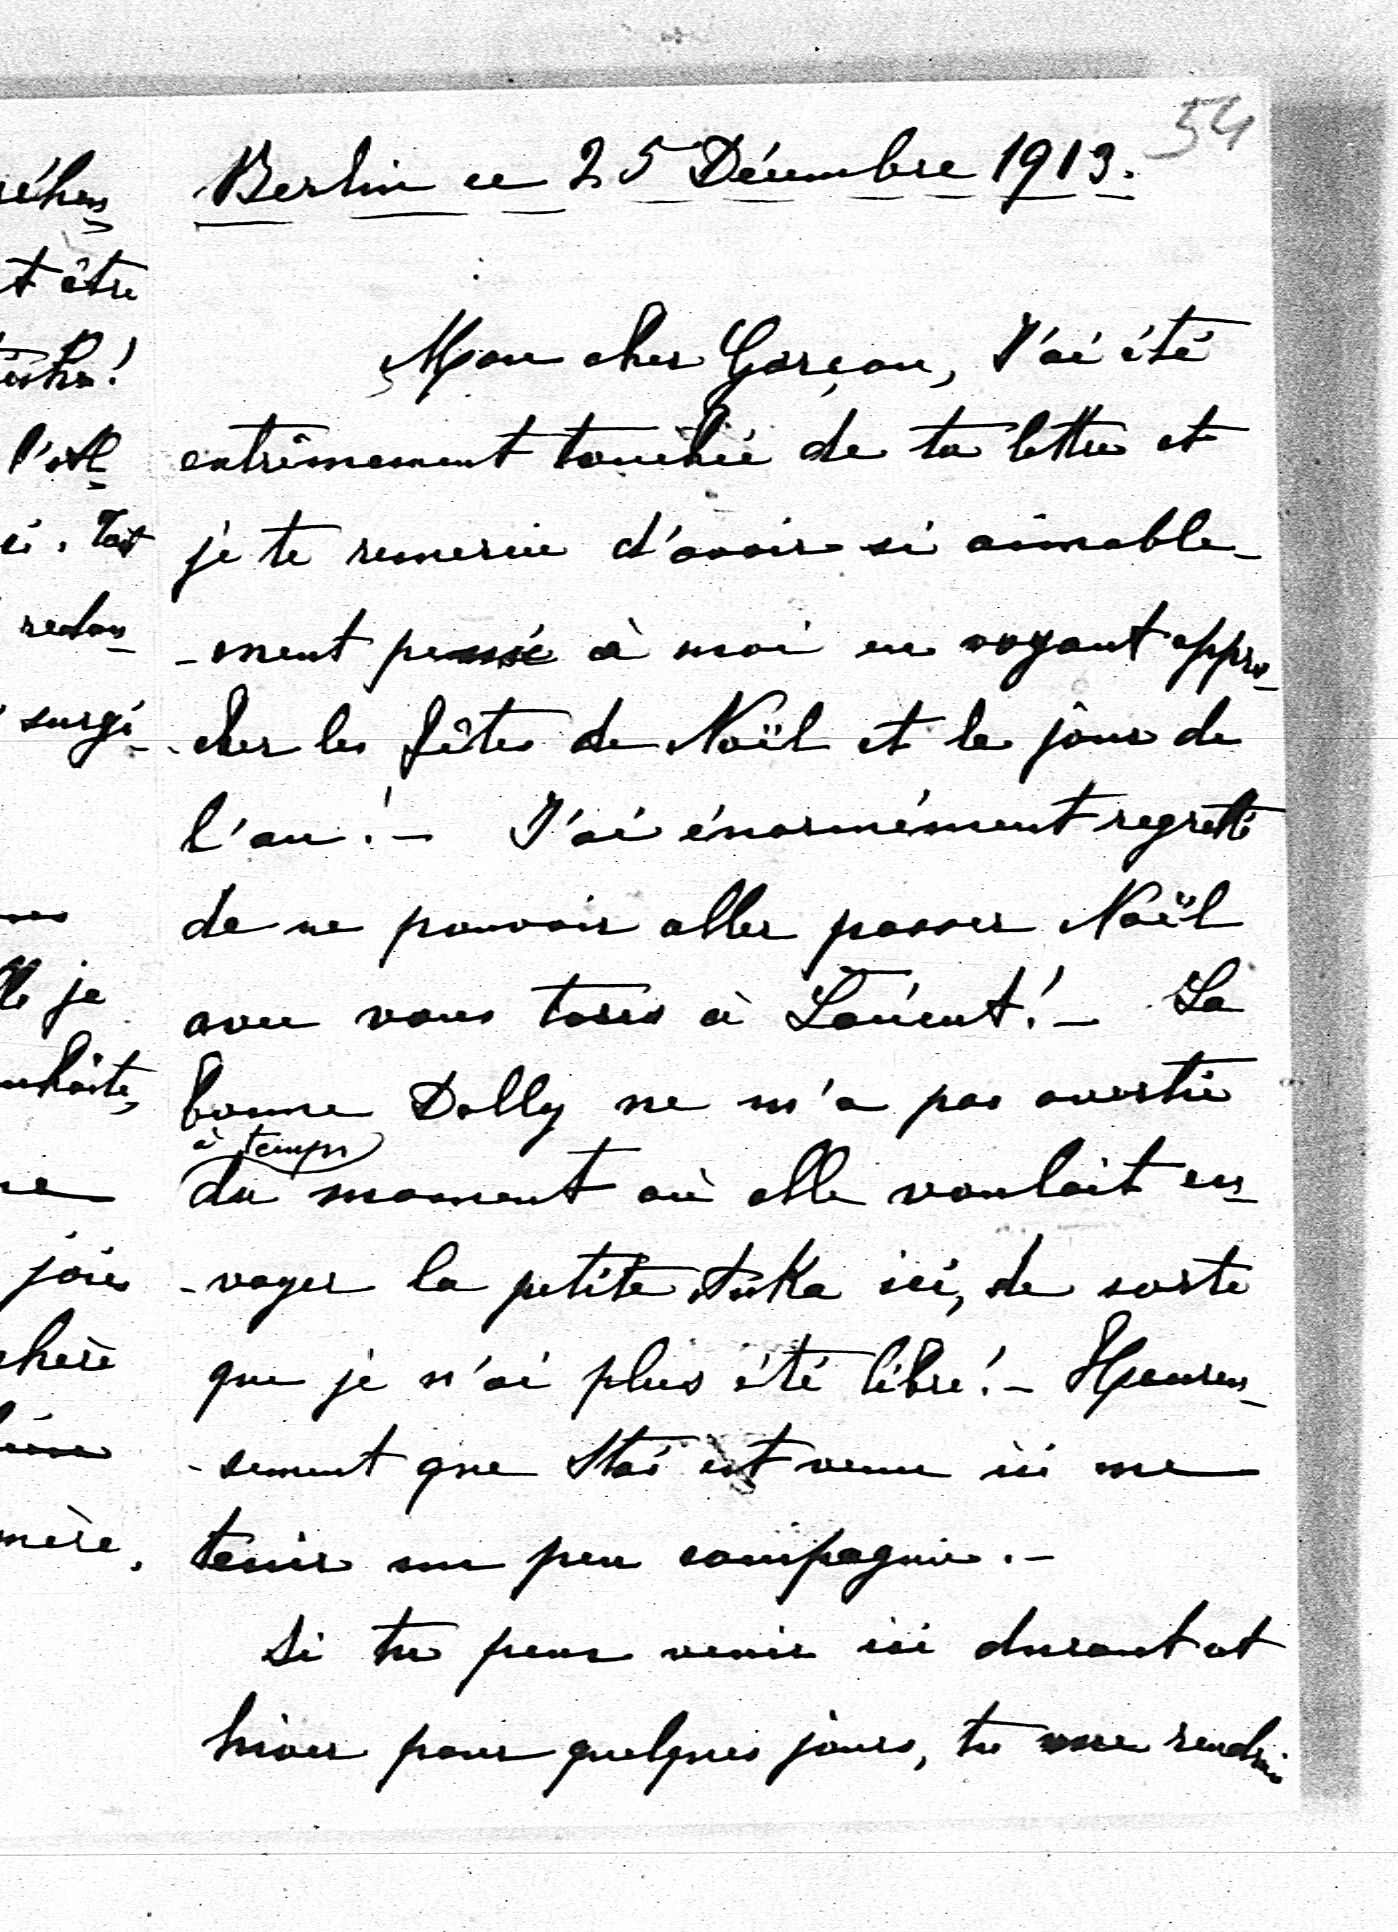 54
Berlin ce 25 Décembre 1913.
Mon cher Garçon, J'ai été
extrêmement touchée de ta lettre et
je te remercie d'avoir si aimable-
-ment pensé à moi en voyant appro-
-cher les fêtes de Noël et le jour de
l'an! - J'ai énormément regretté
de ne pouvoir aller passer Noël
avec vous tous à Lancut! - La
bonne Dolly ne m'a pas avertie
à temps
du moment où elle voulait en-
-voyer la petite ici, de sorte
que je n'ai plus été libre! - Heureu-
-sement que Stas est venu ici me
tenir un peu compagnie. -
Si tu peux venir ici durant cet
hiver pour quelques jours, tu me rendrais
t être
l'
redou-
surgi-
je
joie
chère
mère.